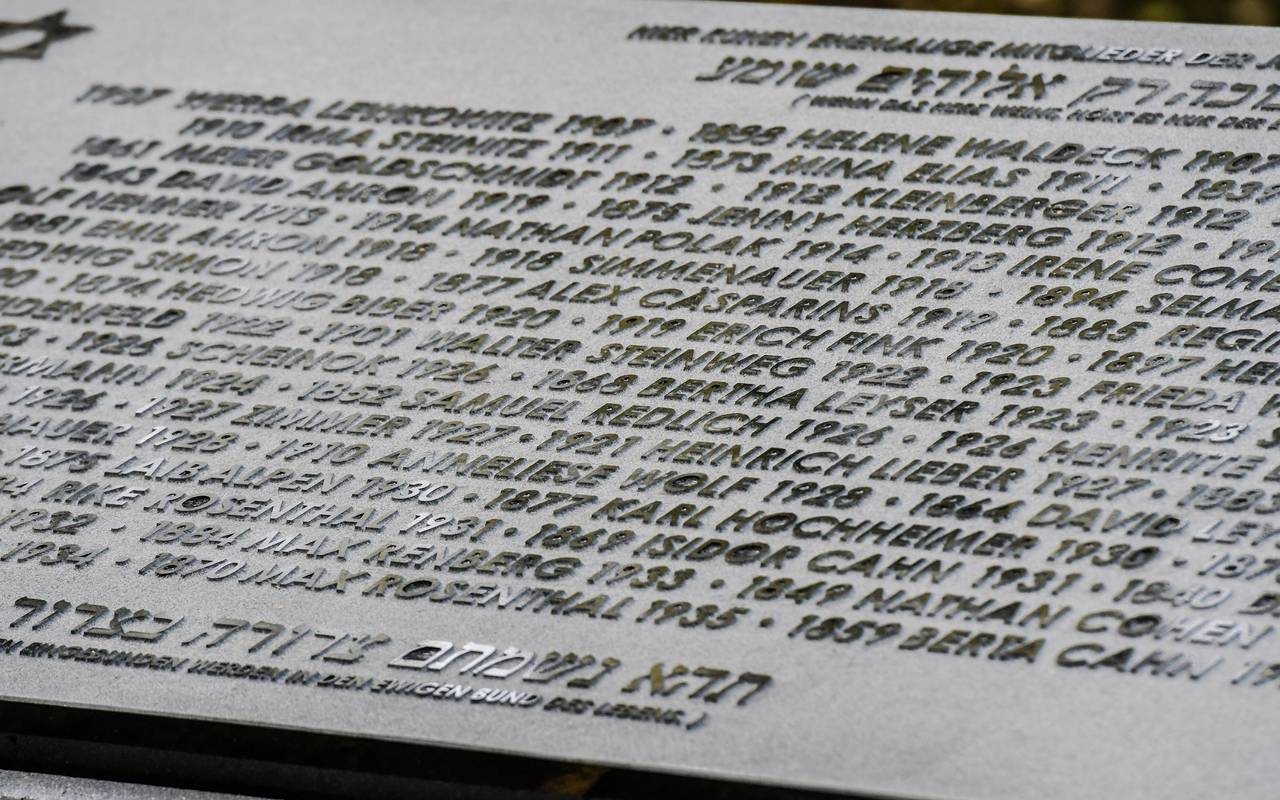 HIER RUHEN EHEMALIGE MITGLIEDER DER
אלוהים שומע
( WENN DAS HERZ WEINT, HÖRT ES NUR DER
LEWKOWITZ 1907 · 1899 HELENE WALDECK 1907
1910 IRMA STEINITZ 1911 · 1873 MINA ELIAS 1911 ·
1861 MEIER GOLDSCHMIDT 1912 · 1912 KLEINBERGER 1912
1843 DAVID AHRON 1919 · 1875 JENNY HERZBERG 1912 ·
1713 · 1914 NATHAN POLAK 1914 · 1913 IRENE
1881 EMIL AHRON 1918 · 1918 SIMMENAUER 1918 · 1894 SELMA
SIMON 1918 · 1877 ALEX CÄSPARINS 1919 · 1885
· 1874 HEDWIG BIBER 1920 · 1919 ERICH FINK 1920 · 1897
1722 · 1901 WALTER STEINWEG 1922 · 1923 FRIEDA
· 1926 SCHEINOK 1926 · 1868 BERTHA LEYSER 1923 · 1923
1924 · 1852 SAMUEL REDLICH 1926 · 1926 HENRITTE
1926 · 1927 ZIMMER 1927 · 1921 HEINRICH LIEBER 1927 ·
1928 · 1910 ANNELIESE WOLF 1928 · 1864 DAVID
1875 LAIB ALPEN 1930 · 1877 KARL HOCHHEIMER 1930 ·
RIKE ROSENTHAL 1931 · 1869 ISIDOR CAHN 1931 · 1840
1932 · 1884 MAX RENBERG 1933 · 1849 NATHAN COHEN
1934 · 1870 MAX ROSENTHAL 1935 · 1859 BERTA CAHN
תהא נשמתם צרורה בצרור
EINGEBUNDEN WERDEN IN DEN EWIGEN BUND DES LEBENS. )